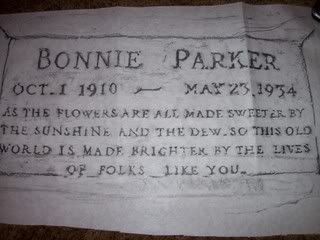 BONNIE PARKER
OCT. 1 1910 — MAY 23, 1934
AS THE FLOWERS ARE ALL MADE SWEETER BY
THE SUNSHINE AND THE DEW. SO THIS OLD
WORLD IS MADE BRIGHTER BY THE LIVES
OF FOLKS LIKE YOU.